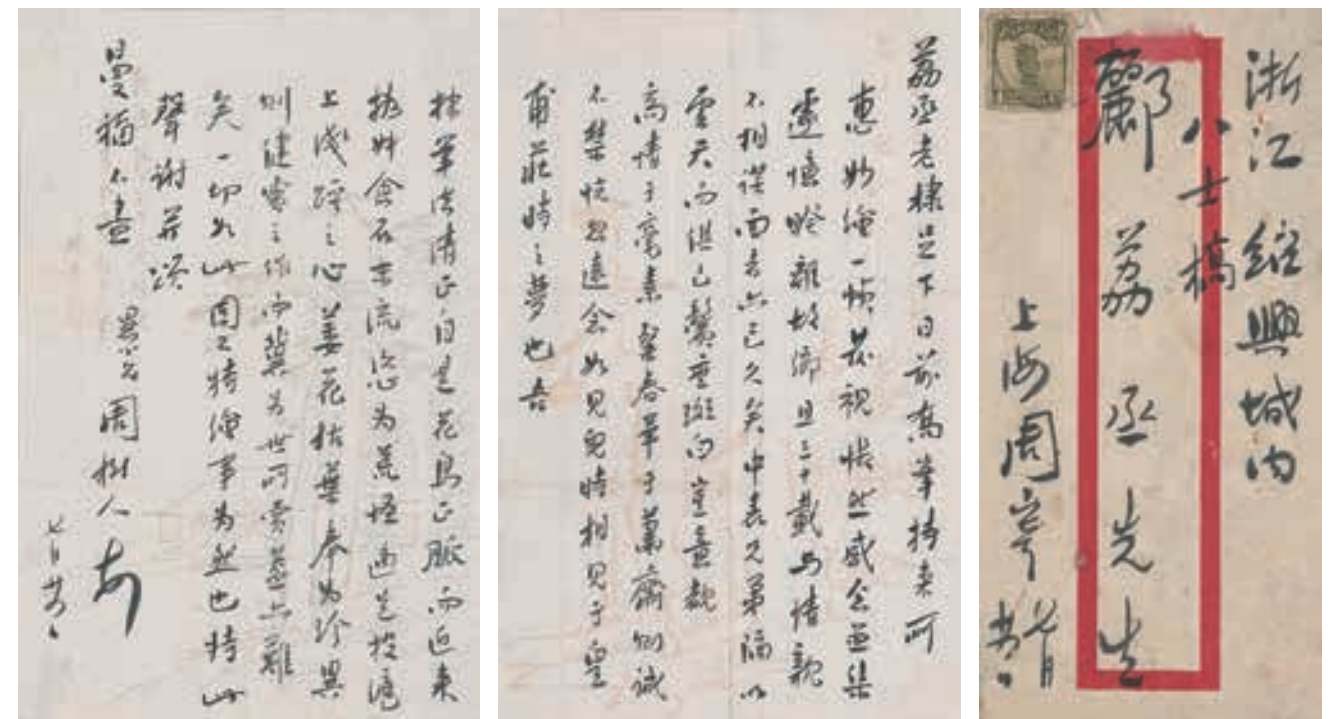 浙江紹興城內
八士橋
酈荔丞先生
上海周寄
七月
荔丞老棣足下日前喬峯持來所
惠妙繪一幀展視悵然感念並集
遽憶暌離故鄉且三十載與諸親
不相謀面者亦已久矣中表兄弟隔以
雲天而俱已鬢髮斑白豈意覩
高情于毫素挹春華于蕭齋則誠
不禁恍忽遠念如見兒時相見于皇
甫莊時之夢也吾
棣筆法清正自是花鳥正脈而近來
末流恣為荒怪適足投滬
上淺躁之心萎花枯葉奉為珍異
則健實之作而冀為世所賞蓋亦難
矣一切如此固不特繪事為然也特此
聲謝并頌
曼福不盡
愚兄周樹人頓
七月